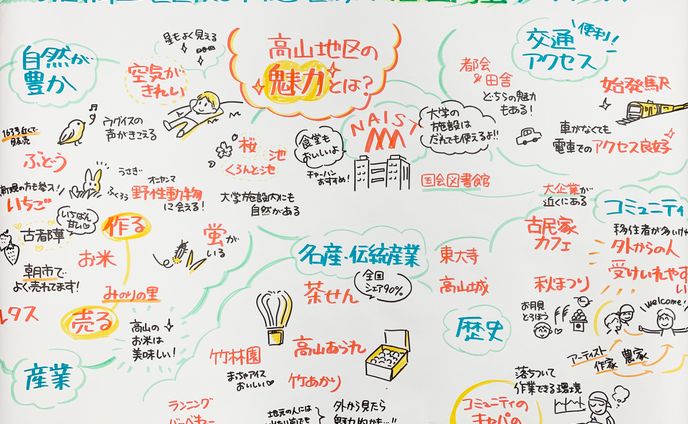 星もよく見える
自然が
豊か
空気が
きれい
高山地区の
魅力
とは?
交通
アクセス
便利!
都会
&田舎
どちらの魅力
もある!
始発駅
車がなくても
電車でのアクセス良好
ウグイスの
声がきこえる
ぶどう
いちご
うさぎ
オニヤンマ
ふくろう
野性動物
に会える!
桜
池
くろんど池
大学施設内にも
自然がある
食堂も
おいしいよ
チャーハン
おすすめ!
NAIST
大学の
施設は
だれでも使えるよ!!
国会図書館
大企業が
近くにある
コミュニティ
移住者が多いけど
外からの人
受けいれやすい
welcome!
古民家
カフェ
秋まつり
お月見
どろぼう
アーティスト
作家
農家
いちばん
甘い
古都華
朝市で
よく売れてます!
作る
お米
みのりの里
売る
高山の
お米は
美味しい!
産業
蛍が
いる
名産・伝統産業
茶せん
全国
シェア90%
東大寺
高山城
歴史
竹林園
まっちゃアイス
おいしい
高山あられ
竹あかり
落ちついて
作業できる環境
ランニング
地元の人には
外から見たら
コミュニティの